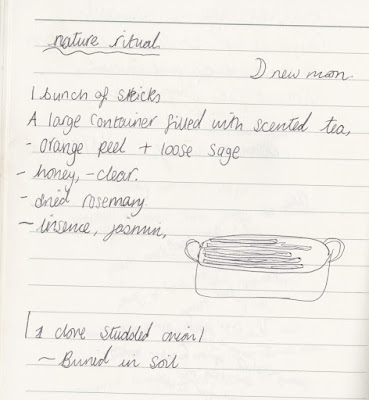 nature ritual
D new moon
1 bunch of sticks
A large container filled with scented tea,
- orange peel + loose sage
- honey, - clear.
- dried rosemary
- insence, jasmin,
1 clove studded onion
~ Buried in soil